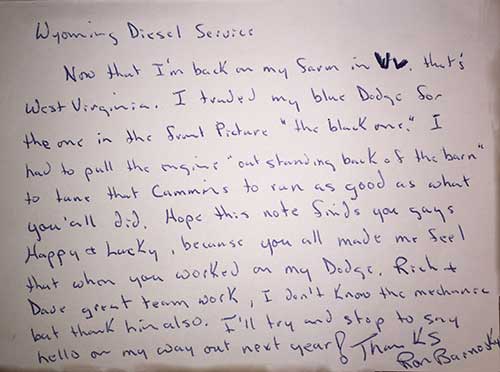 Wyoming Diesel Service
Now that I'm back on my farm in Wv. that's
West Virginia. I traded my blue Dodge for
the one in the front Picture "the black one." I
had to pull the engine "out standing back of the barn"
to tune that Cummins to run as good as what
you'all did. Hope this note finds you guys
Happy & Lucky, because you all made me feel
that when you worked on my Dodge. Rich &
Dave great team work, I don't know the mechanic
but thank him also. I'll try and stop to say
hello on my way out next year! Thanks
Ron